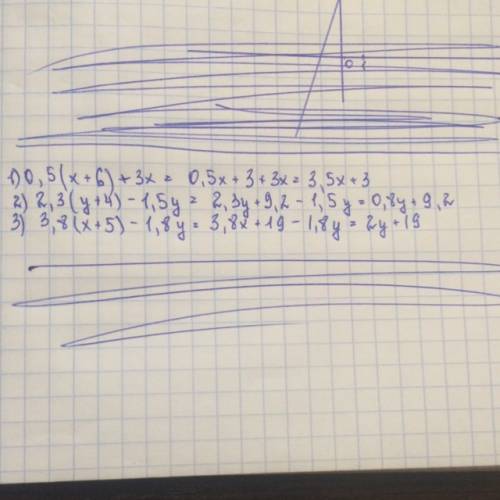 1) 0,5(x+6)+3x = 0,5x+3+3x = 3,5x+3
2) 2,3(y+4)-1,5y = 2,3y+9,2-1,5y = 0,8y+9,2
3) 3,8(x+5)-1,8y = 3,8x+19-1,8y = 2y+19